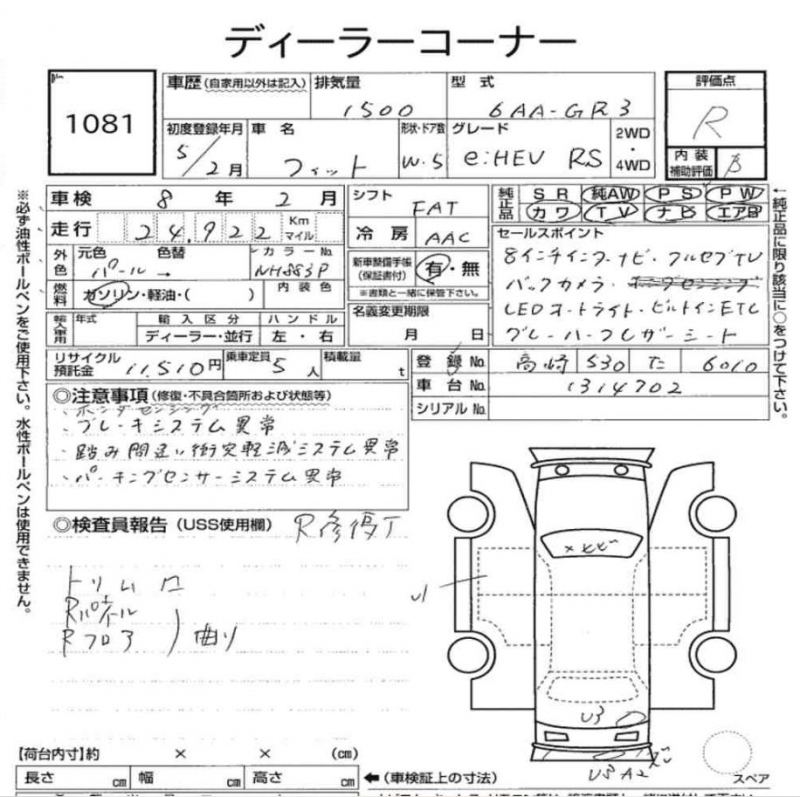 ディーラーコーナー
1081
車歴 (自家用以外は記入)
排気量
1500
型式
6AA-GR3
評価点
R
初度登録年月
5/2月
車名
フィット
形状・ドア数
W.5
グレード
e:HEV RS
2WD
・
4WD
内装
補助評価
B
車検 8年 2月
シフト
FAT
純正品
SR 純AW PS PW
カワ TV ナビ エアB
走行 24,922 Km マイル
冷房
AAC
セールスポイント
8インチインターナビ・フルセグTV
バックカメラ・
LEDオートライト・ビルトインETC
グレーハーフレザーシート
外色
元色 色替
パール →
カラーNo.
NH883P
新車整備手帳
(保証書付)
有・無
※書類と一緒に保管下さい。
燃料
ガソリン・軽油・( )
内装色
輸入車用
年式
輸入区分
ディーラー・並行
ハンドル
左・右
名義変更期限
月 日
リサイクル預託金 11,510円
乗車定員 5人
積載量 t
登録No. 高崎 530 た 6010
車台No. 1314702
シリアルNo.
◎注意事項 (修復・不具合箇所および状態等)
ホンダセンシング
ブレーキシステム異常
踏み間違い衝突軽減システム異常
パーキングセンサーシステム異常
◎検査員報告 (USS使用欄) R修復丁
トリム
Rパネル
Rフロア
曲り
×ヒビ
U1
U3
U3 A2
※必ず油性ボールペンをご使用下さい。水性ボールペンは使用できません。
←純正品に限り該当に○をつけて下さい。
【荷台内寸】約 × × (cm)
長さ cm 幅 cm 高さ cm
←(車検証上の寸法)
スペア